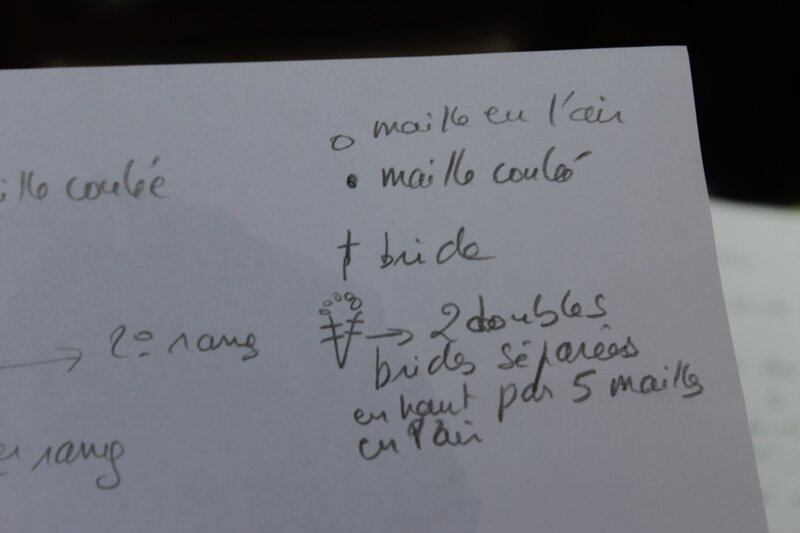 maille en l'air
maille coulé
ille coulée
bride
2 doubles
2e rang
brides séparées
en haut par 5 mailles
en l'air
er rang